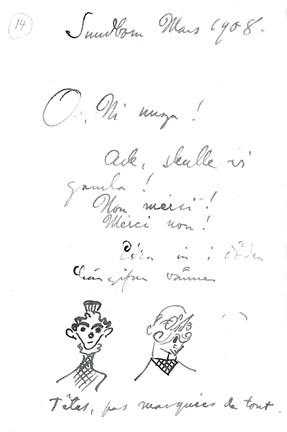 14
Sundborn Mars 1908.
O, Ni unga!
Ack, skulle vi
gamla!
Non merci!
Merci non!
Edra in i döden
hängifna vänner
Têtes, pas marquées du tout.